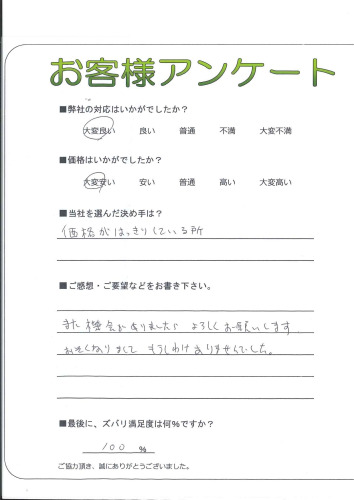 お客様アンケート
■弊社の対応はいかがでしたか?
大変良い 良い 普通 不満 大変不満
■価格はいかがでしたか?
大変安い 安い 普通 高い 大変高い
■当社を選んだ決め手は?
価格がはっきりしている所
■ご感想・ご要望などをお書き下さい。
また機会がありましたら よろしくお願いします
おそくなりまして もうしわけありませんでした。
■最後に、ズバリ満足度は何%ですか?
100 %
ご協力頂き、誠にありがとうございました。